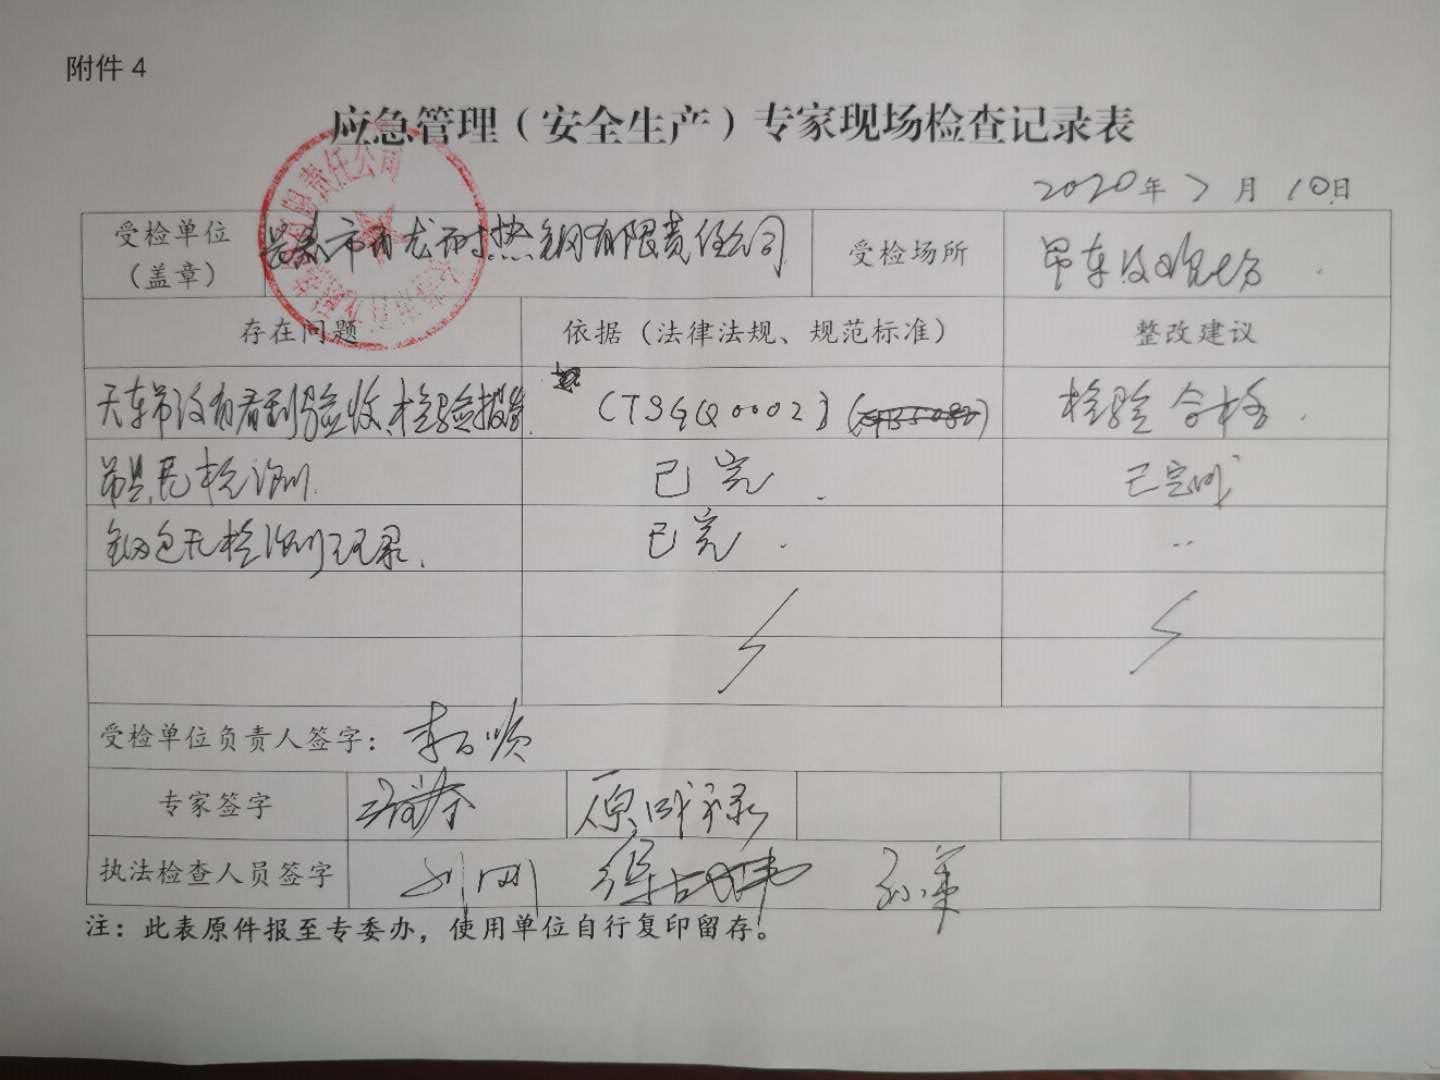 附件 4
应急管理（安全生产）专家现场检查记录表
2020年 7 月 10日
受检单位
（盖章）
市 耐热钢有限责任公司
受检场所
吊车及现场
存在问题
依据（法律法规、规范标准）
整改建议
天车吊没有看到验收、检验报告
(TSGQ0002)
检验合格.
吊具无检测.
已完.
已完成
钢包无检测记录.
已完.
受检单位负责人签字：
专家签字
原成禄
执法检查人员签字
刘刚
注：此表原件报至专委办，使用单位自行复印留存。
责任公司